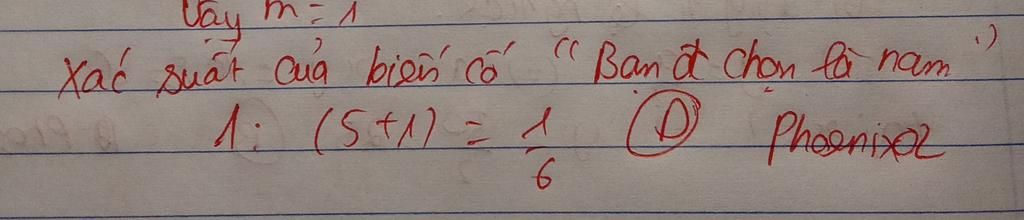 Vậy m = 1
Xác suất của biến cố “Bạn đt chọn là nam”
1 : (5+1) = 1/6 D Phoenix02